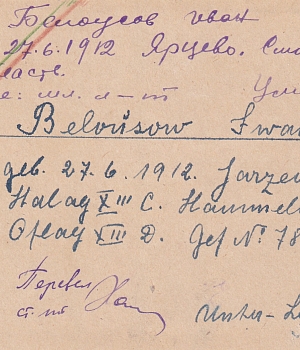 Белоусов Иван
27.6.1912 Ярцево. Смо
ласть.
е: мл. л-т Ум
Beloúsow Iwa
geb. 27.6.1912. Jarzew
Halag XIII C. Hammel
Oflag XIII D. Gef № 78
Перевел
ст. лт
Unter-L